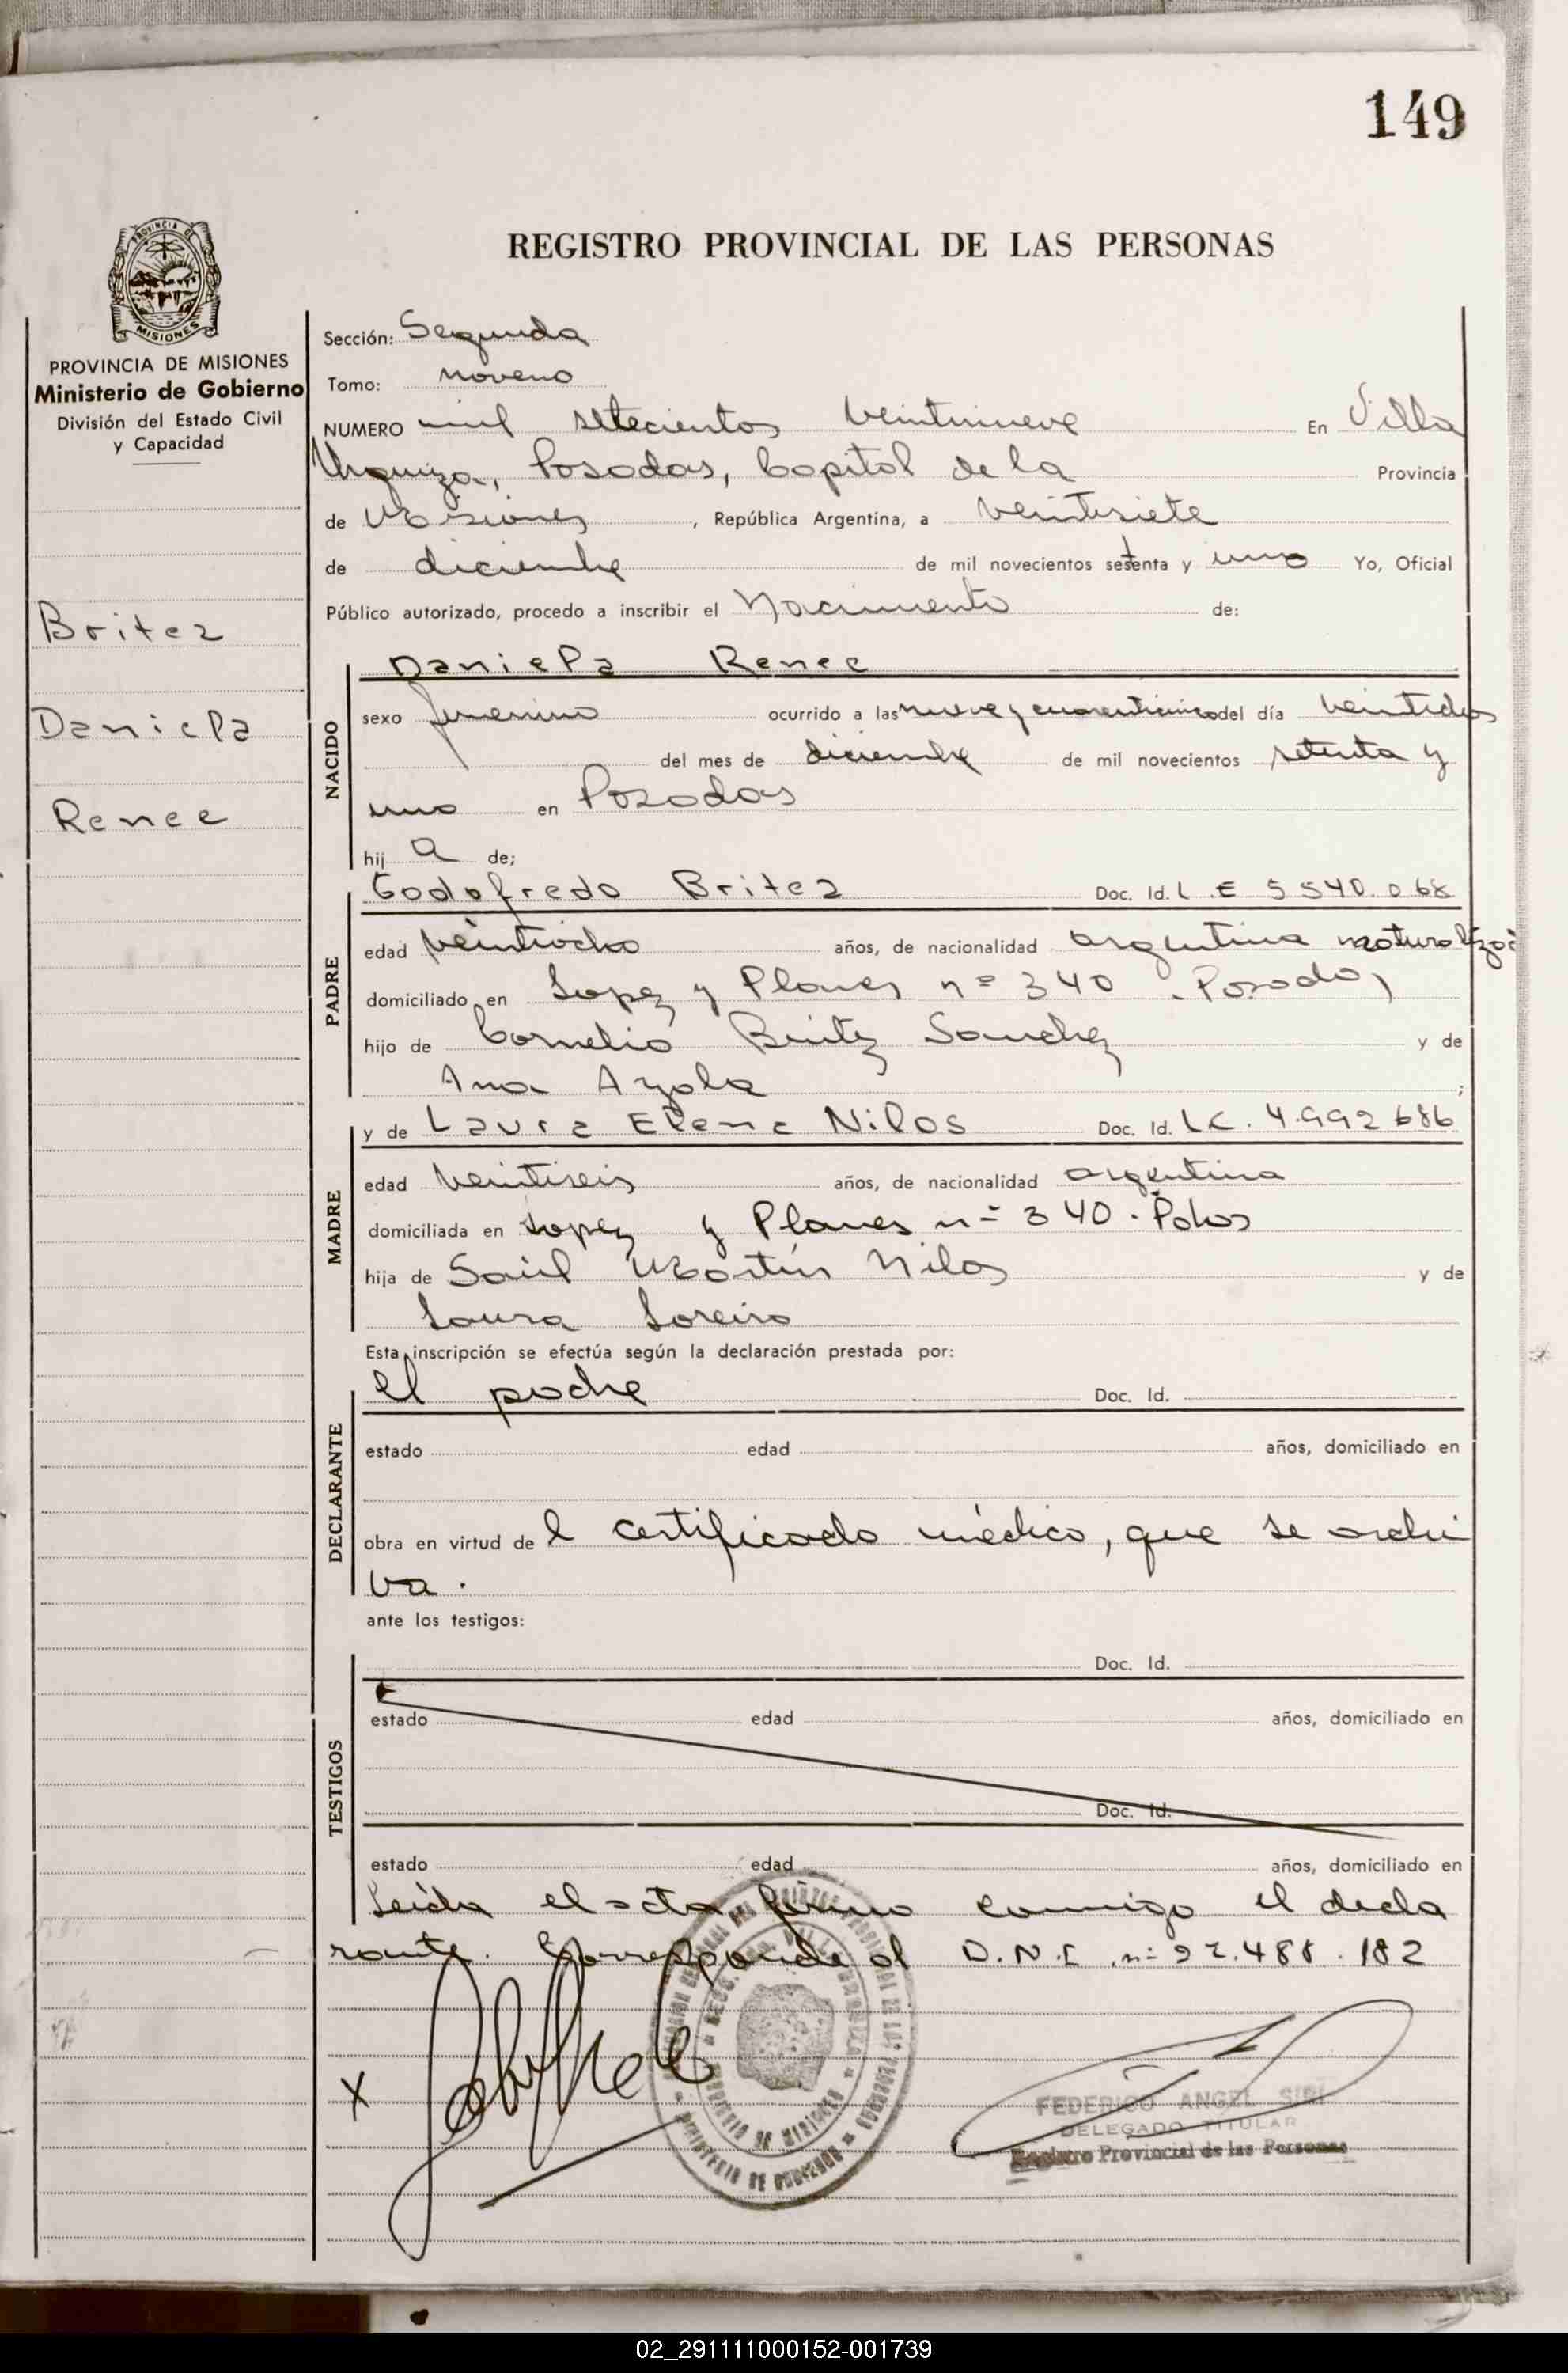 149
PROVINCIA DE
MISIONES
PROVINCIA DE MISIONES
Ministerio de Gobierno
División del Estado Civil
y Capacidad
Britez
Daniela
Renee
REGISTRO PROVINCIAL DE LAS PERSONAS
Sección: Segunda
Tomo: noveno
NUMERO mil setecientos veintinueve En Villa
Urquiza, Posadas, Capital de la Provincia
de Misiones, República Argentina, a veintisiete
de diciembre de mil novecientos setenta y uno Yo, Oficial
Público autorizado, procedo a inscribir el Nacimiento de:
NACIDO
Daniela Renee
sexo femenino ocurrido a las nueve y cuarenticinco del día veintidos
del mes de diciembre de mil novecientos setenta y
uno en Posadas
hij a de;
PADRE
Godofredo Britez Doc. Id. L.E 5 540.068
edad veintiocho años, de nacionalidad argentina
domiciliado en Lopez y Planes nº 340 - Posadas
hijo de Cornelio Britez Sanchez y de
Ana Ayala ;
MADRE
y de Laura Elena Nilos Doc. Id. LC. 4.992 686
edad veintiseis años, de nacionalidad argentina
domiciliada en Lopez y Planes nº 340 - Pdas
hija de Saúl Martín Nilos y de
Laura Loreiro
Esta inscripción se efectúa según la declaración prestada por:
DECLARANTE
el padre Doc. Id.
estado edad años, domiciliado en
obra en virtud de l certificado médico, que se archi
va.
ante los testigos:
TESTIGOS
Doc. Id.
estado edad años, domiciliado en
Doc. Id.
estado edad años, domiciliado en
Leída el acta firma conmigo el decla
rante. Corresponde al D.N.I nº 22.488.182
X
FEDERICO ANGEL SIRI
DELEGADO TITULAR
Registro Provincial de las Personas
02_291111000152-001739